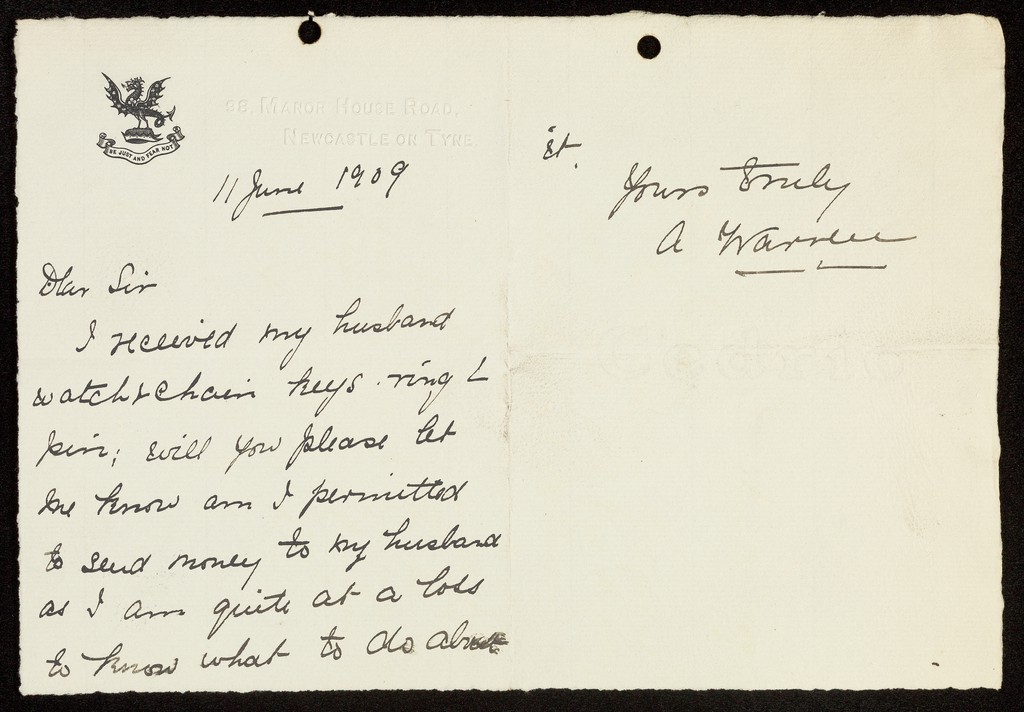 BE JUST AND FEAR NOT
98, MANOR HOUSE ROAD,
NEWCASTLE ON TYNE.
11 June 1909
Dear Sir
I received my husband
watch & chain keys ring &
pin; will you please let
me know am I permitted
to send money to my husband
as I am quite at a loss
to know what to do about
it.
Yours Truly
A Warren